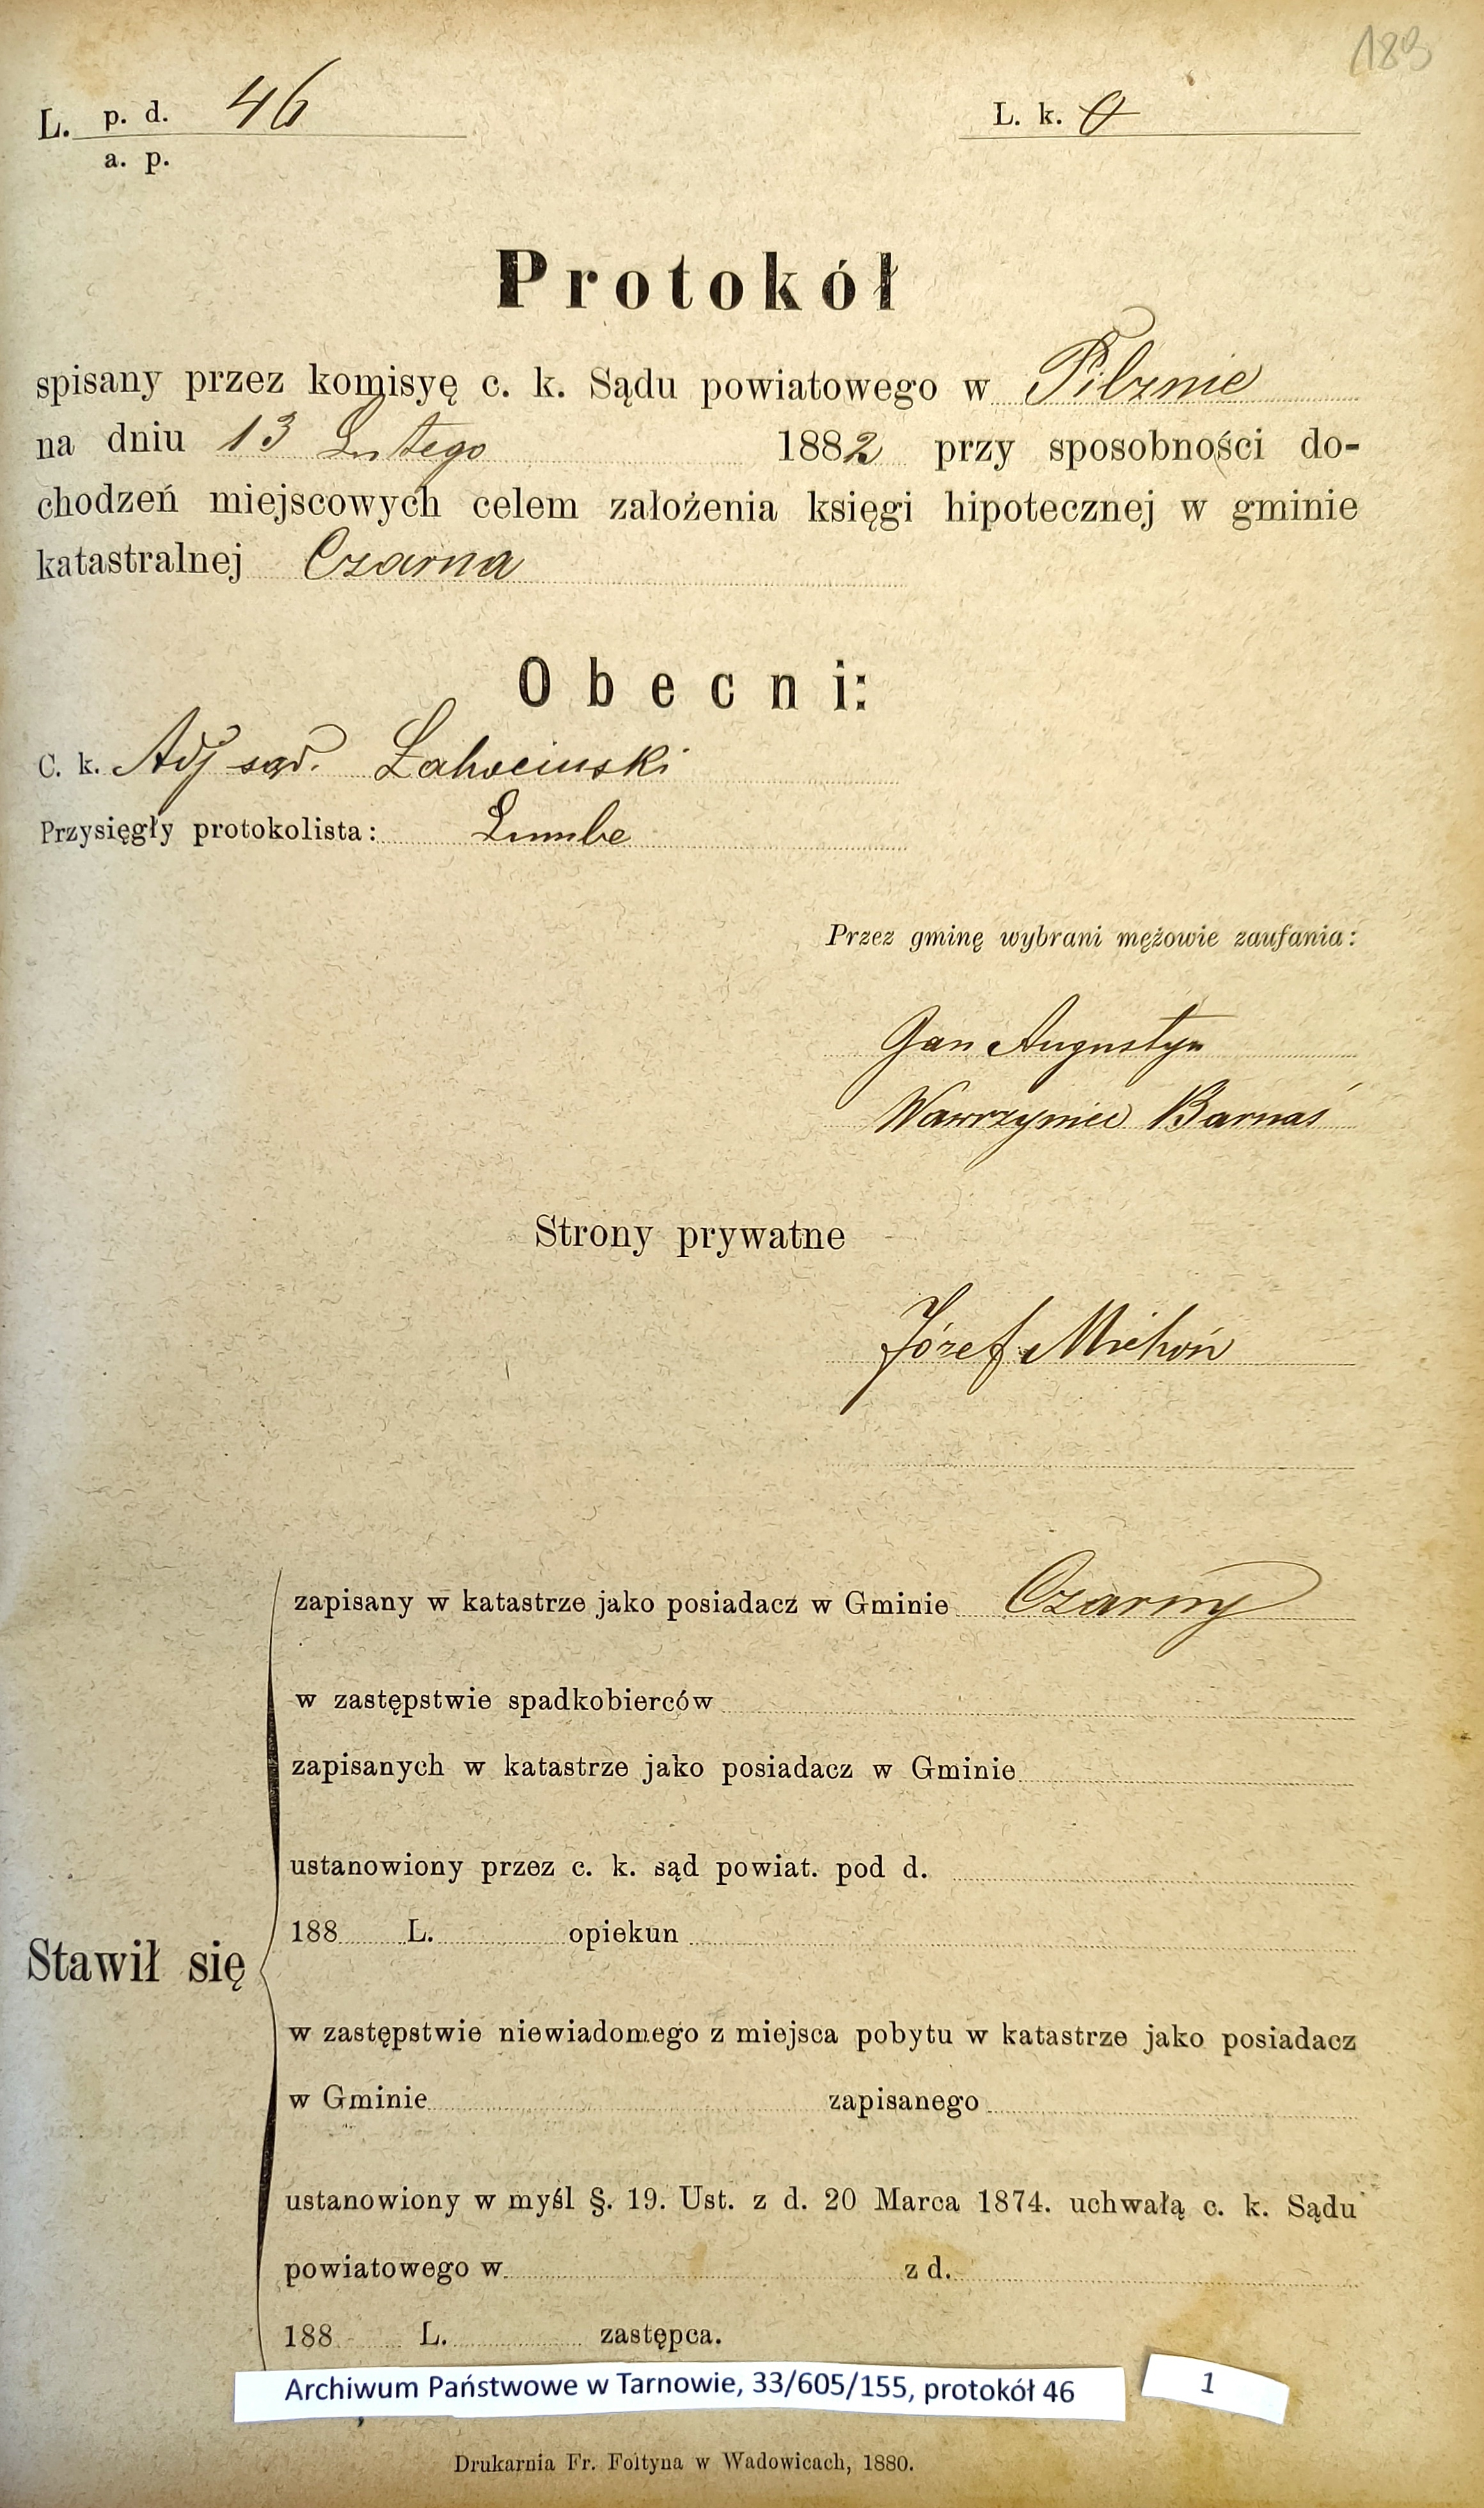 189
L. p. d. 46
a. p.
L. k. 0
Protokół
spisany przez komisyę c. k. Sądu powiatowego w Pilznie
na dniu 13 Lutego 1882 przy sposobności do-
chodzeń miejscowych celem założenia księgi hipotecznej w gminie
katastralnej Czarna
Obecni:
C. k. Adj sąd. Łahociński
Przysięgły protokolista:
Przez gminę wybrani mężowie zaufania:
Jan Augustyn
Wawrzyniec Barnaś
Strony prywatne
Józef Michoń
zapisany w katastrze jako posiadacz w Gminie Czarny
w zastępstwie spadkobierców
zapisanych w katastrze jako posiadacz w Gminie
ustanowiony przez c. k. sąd powiat. pod d.
188 L. opiekun
Stawił się
w zastępstwie niewiadomego z miejsca pobytu w katastrze jako posiadacz
w Gminie zapisanego
ustanowiony w myśl §. 19. Ust. z d. 20 Marca 1874. uchwałą c. k. Sądu
powiatowego w z d.
188 L. zastępca.
Archiwum Państwowe w Tarnowie, 33/605/155, protokół 46
1
Drukarnia Fr. Foltyna w Wadowicach, 1880.